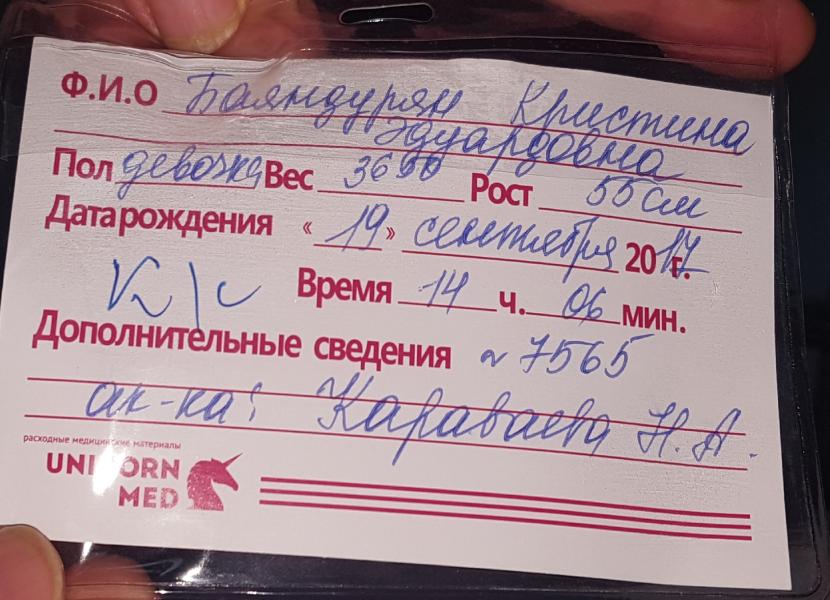 Ф.И.О Баяндурян Кристина
Эдуардовна
Пол девочка Вес 3690 Рост 55 см
Дата рождения « 19 » сентября 2017 г.
к/с Время 14 ч. 06 мин.
Дополнительные сведения ~ 7565
ак-ка: Караваева Н. А.
расходные медицинские материалы
UNICORN
MED